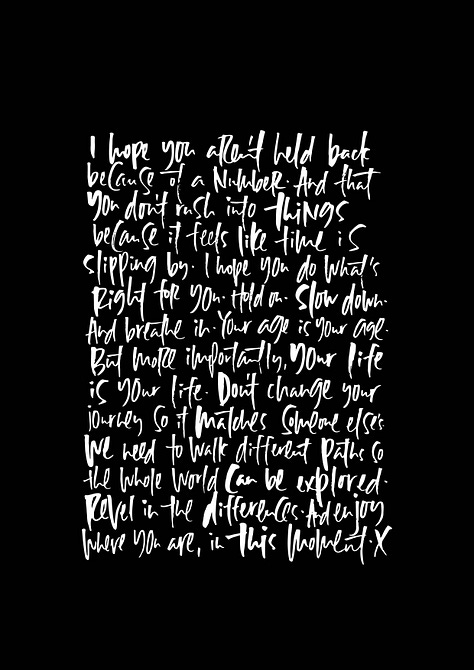 I hope you aren't held back
because of a Number. And that
you don't rush into THINGS
because it feels like time is
slipping by. I hope you do what's
Right for you. Hold on. Slow down.
And breathe in. Your age is your age.
But more importantly, your life
is your life. Don't change your
journey so it matches someone else's
We need to walk different paths so
the whole world can be explored.
Revel in the differences. And enjoy
where you are, in this moment. X